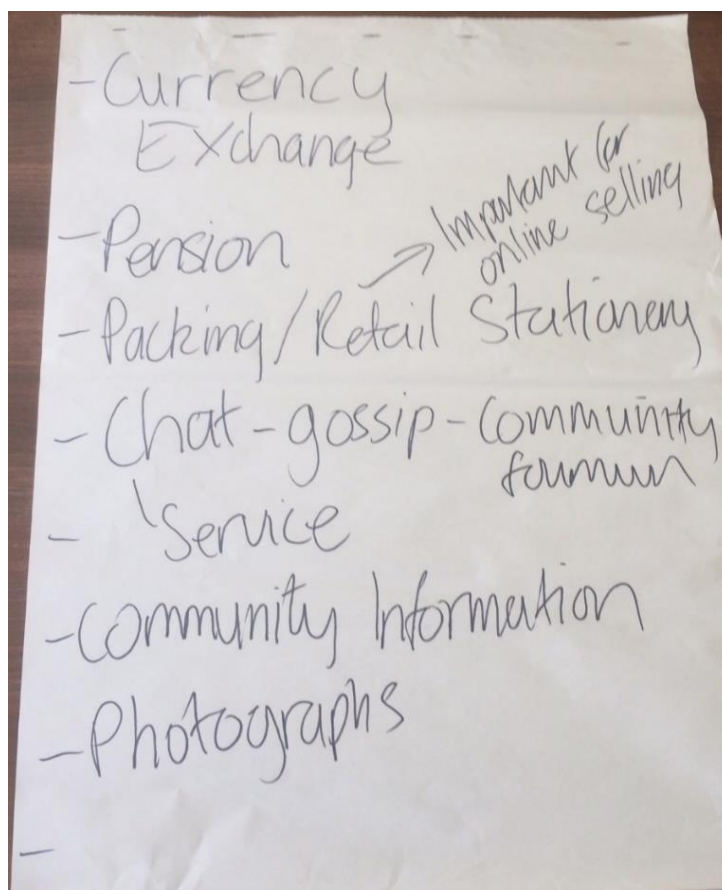 - Currency
Exchange
- Pension
Important for
online selling
- Packing / Retail Stationery
- Chat - gossip - Community
foumun
- Service
- Community Information
- Photographs
-